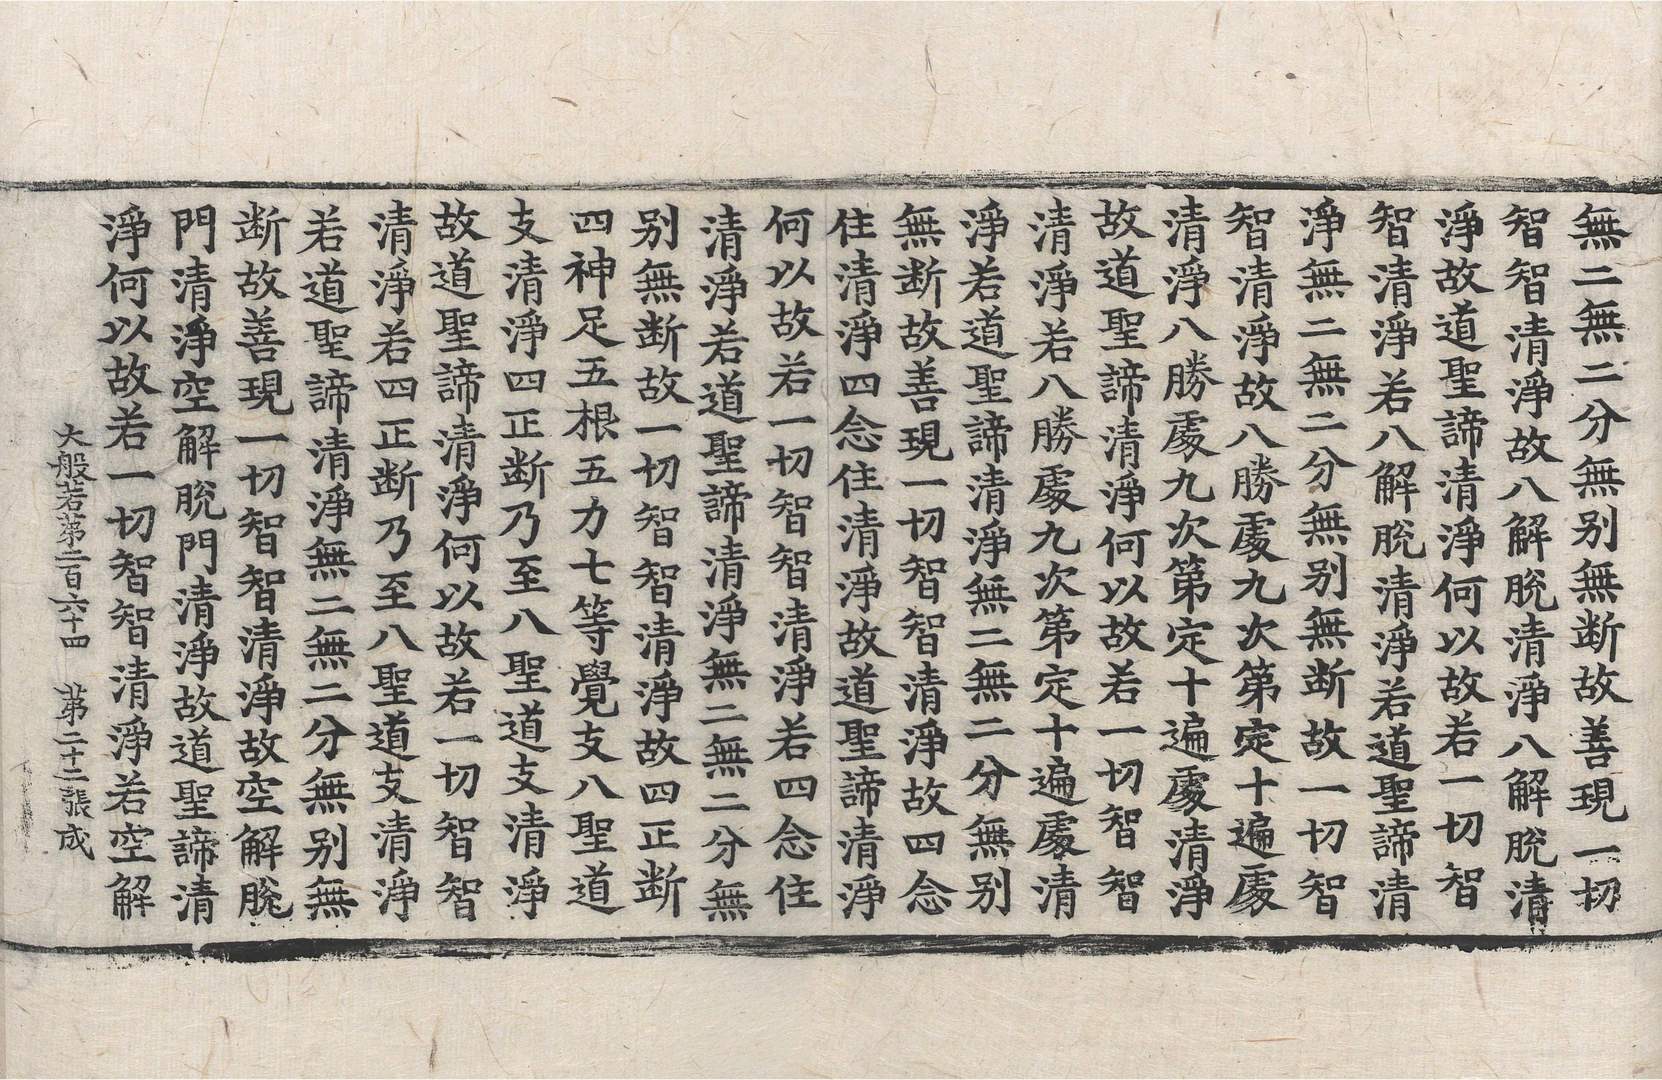 無二無二分無别無断故善現一切
智智清淨故八解脫清淨八解脫清
淨故道聖諦清淨何以故若一切智
智清淨若八解脫清淨若道聖諦清
淨無二無二分無别無断故一切智
智清淨故八勝處九次第定十遍處
清淨八勝處九次第定十遍處清淨
故道聖諦清淨何以故若一切智智
清淨若八勝處九次第定十遍處清
淨若道聖諦清淨無二無二分無别
無断故善現一切智智清淨故四念
住清淨四念住清淨故道聖諦清淨
何以故若一切智智清淨若四念住
清淨若道聖諦清淨無二無二分無
别無断故一切智智清淨故四正断
四神足五根五力七等覺支八聖道
支清淨四正断乃至八聖道支清淨
故道聖諦清淨何以故若一切智智
清淨若四正断乃至八聖道支清淨
若道聖諦清淨無二無二分無别無
断故善現一切智智清淨故空解脫
門清淨空解脫門清淨故道聖諦清
淨何以故若一切智智清淨若空解
大般若第二百六十四 第二十二張 成